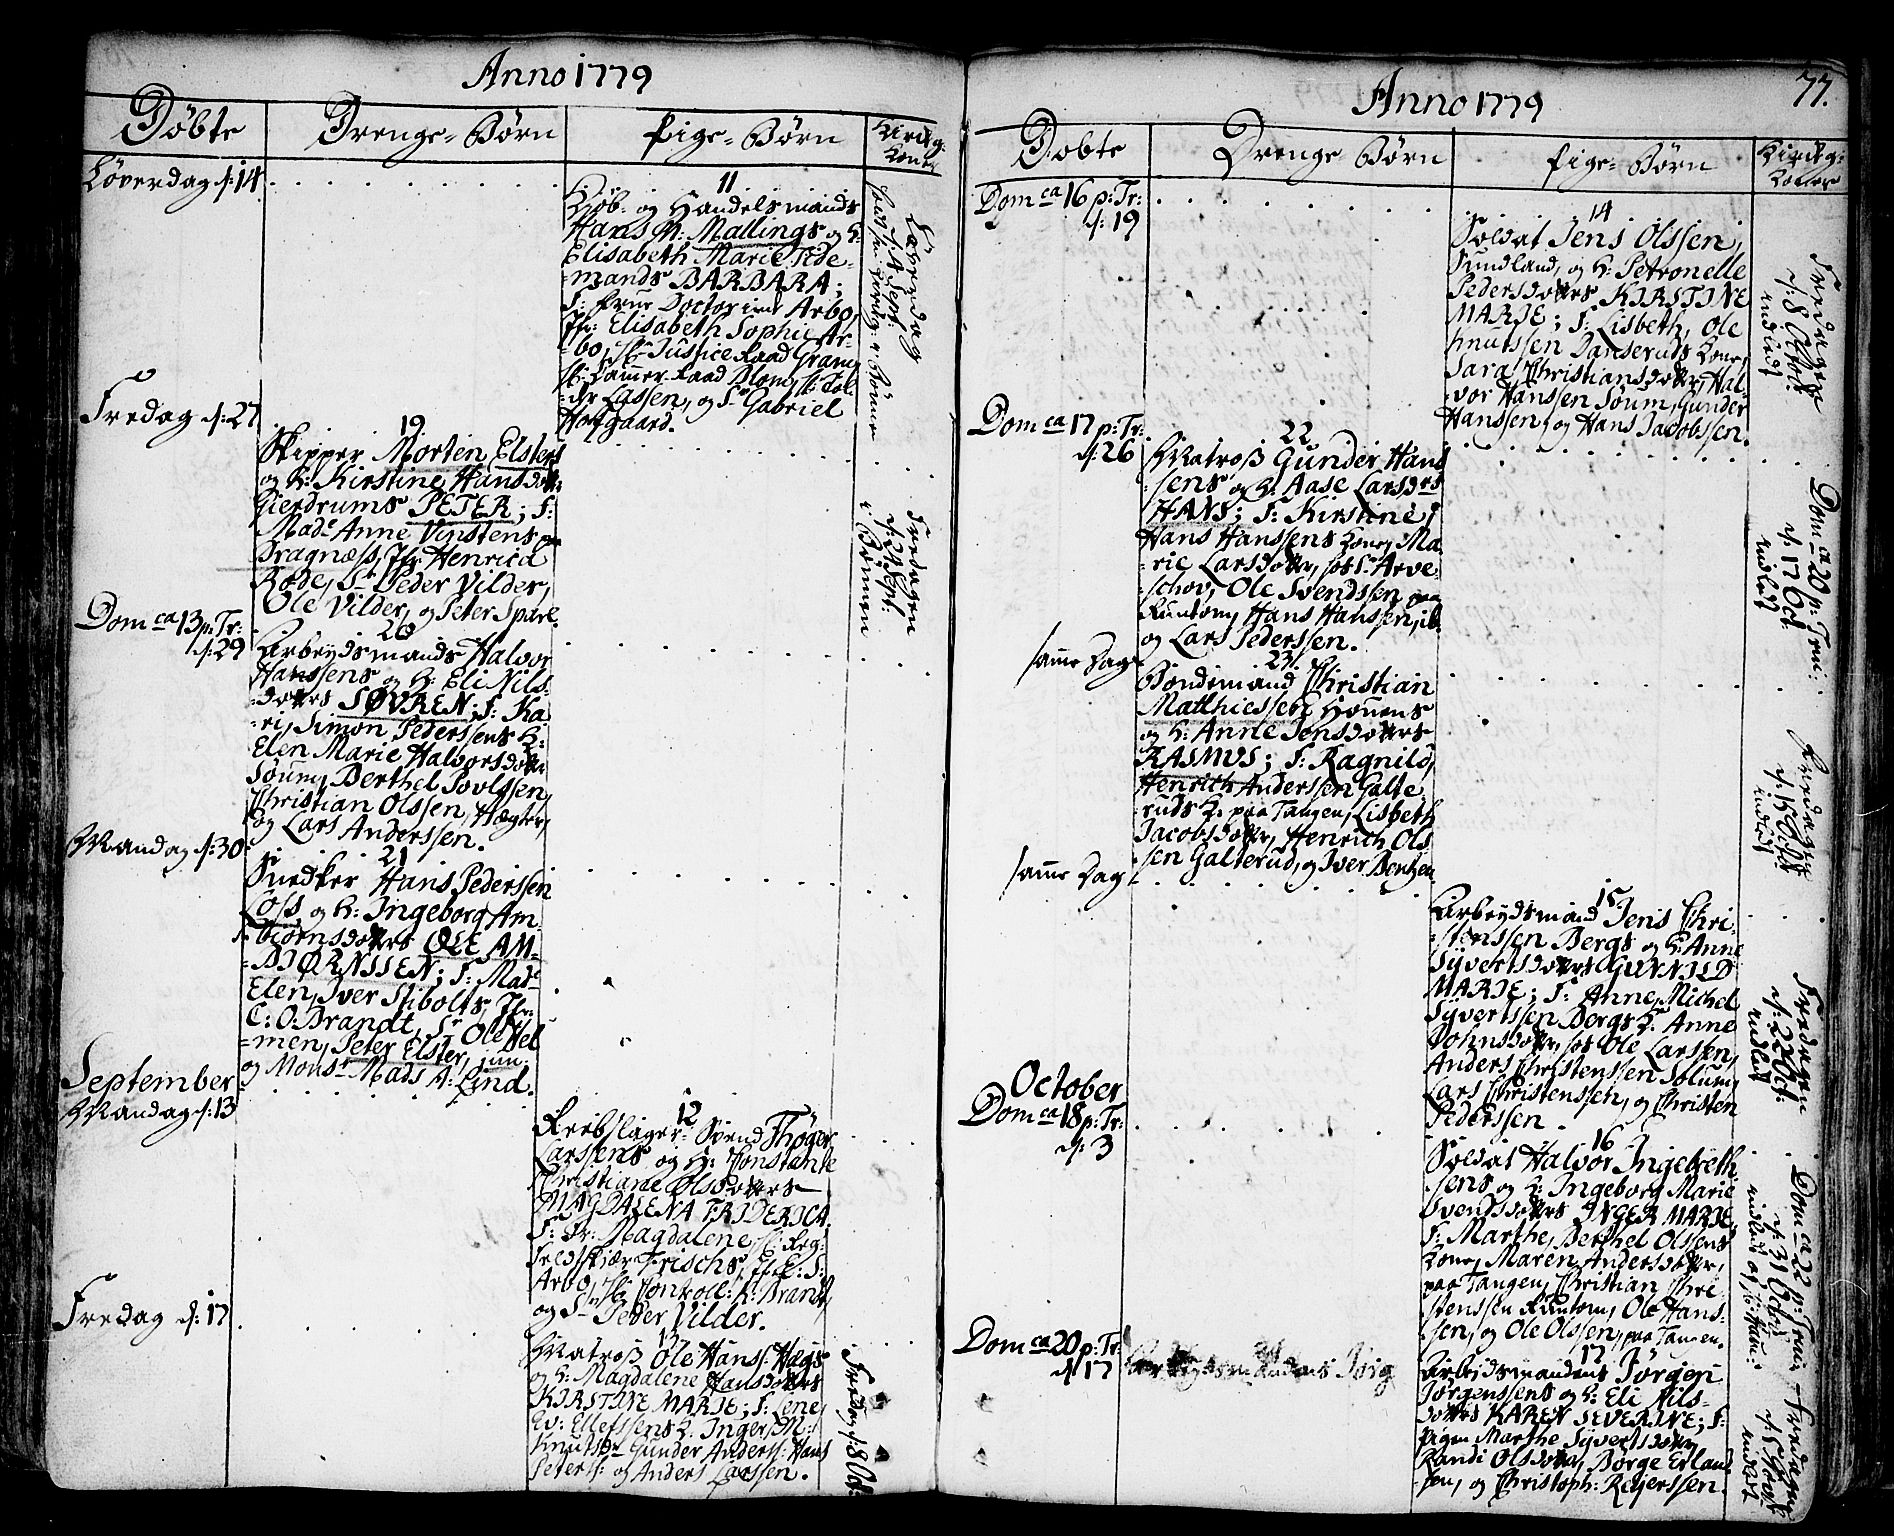 Anno 1779
Döbte
Drenge-Börn
Pige-Börn
Kirkeg:
Koner
Löverdag d: 14.
11
Kiöb- og Handelsmands
Hans P: Mallings og H:
Elisabeth Marie Tide-
-mands BARBARA;
F: Frue Doctorinne Arbo,
Jfr: Elisabeth Sophie Ar-
-bo, Hr Justice Raad Gram,
Hr: Kamer-Raad Blom,
Lassen, og Sr Gabriel
Hofgaard.
Löverdag
d: 4 Sept:
Fredag d: 27
19
Skipper Morten Elsters
og H: Kirstine Hansdotters
Gierdrums PETER; F:
Made Anne Vinstens paa
Tragnæss, Jfr Henrica
Rode, Sr Peder Vilder,
Ole Vilder, og Peter Sparl.
Fredagen
d: 24 Sept:
i Bönnen
Domca 13 p: Tr:
d: 29
20
Arbeydsmands Halvor
Hanssens og H: Eli Nils-
-dotters SØVREN; F: Ka-
-ri, Simon Pederssens H:
Elen Marie Halvorsdotter
Soum, Berthel Povlssen,
Christian Olssen, Hægter,
og Lars Anderssen.
Mandag d: 30
21
Snedker Hans Pederssen
Loss og H: Ingeborg Am-
-biörnsdotters OLE AM-
-BIØRNSSEN; F: Made
Elen, Iver Stibolts, Jfr:
C: O: Brandt, Sr Ole Hel-
-men, Peter Elster, jun:
og Monsr Mads A: Lind.
September
Mandag d: 13
12
Reebslager-Svend Thöger
Larssens og H: Constante
Christiane Olsdotters
MAGDALENA FRIDERICA
F: Fr: Magdalene, Hr: Reg:
Feldskiær Frischs, Jfr E: S:
Arbo, Hr Controll: K: Brandt,
og Sr Peder Vilder.
Fredag d: 17
13
Matros Ole Hans: Hægs
og H: Magdalene Hansdotters
KIRSTINE MARIE; F: Lene
Ev: Ellefssens H. Inger M:
Knutsdr Gunder Anders: Hans
Peters: og Anders Larssen.
Fredag d: 8 Oct:
Anno 1779
77.
Döbte
Drenge Börn
Pige-Börn
Kirkeg:
Koner
Domca 16 p: Tr:
d: 19
14
Soldat Jens Olssen,
Sundland, og H: Petronelle
Pedersdotters KIRSTINE
MARIE; F: Lisbeth, Ole
Knutssen Danseruds Kone,
Sara Christiansdotter, Hal-
vor Hanssen Soum, Gunder
Hanssen, og Hans Jacobssen.
Fredagen
d: 8 Octob:
indledt
Domca 17 p: Tr:
d: 26
22
Matros Gunder Hans
-sens og H. Aase Larsdrs
HANS; F: Kirstine,
Hans Hanssens Kone, Ma-
-rie Larsdotter, hos Sr Arve-
schov, Ole Svendssen paa
Runtom, Hans Hanssen, ib:
og Lars Pederssen.
Domca 20 p: Tri:
d: 17 Oct:
indledt
samme Dag
23.
Bondemand Christian
Mathiessen Houens
og H: Anne Jensdotters
RASMUS; F: Ragnild,
Henrich Anderssen Galte-
-ruds H: paa Tangen, Lisbeth
Jacobsdotter, Henrich Ols-
-sen Galterud, og Iver Bentzen
Fredagen
d: 15 Oct:
indledt
samme Dag
15
Arbeydsmand Jens Chri-
-stenssen Bergs og H: Anne
Syvertsdotters GUNNILD
MARIE; F: Anne, Michel
Syvertssen Bergs H: Anne
Johnsdotter, hos Ole Larssen,
Anders Christenssen Solum,
Lars Christenssen, og Christen
Pederssen.
Fredagen
d: 22 Oct:
indledt
October
Domca 18 p: Tr:
d: 3
16
Soldat Halvor Ingebreth-
-sens og H: Ingeborg Marie
Svendsdotters INGER MARIE;
F: Marthe, Berthel Olssens
Kone, Maren Andersdotter,
paa Tangen, Christian Chri-
stenssen Runtom, Ole Hans-
-sen, og Ole Olssen, paa Tangen.
Domca 22 p: Trin:
d: 31 Octob:
Domca 20 p: Tr:
d: 17
17
Arbeidsmandens Jörgen
Jörgenssens og H: Eli Nils-
dotters KAREN SEVERINE; F:
Pigen Marthe Syvertsdotter
Randi Olsdotter, Börge Erland-
sen, og Christoph: Reyerssen.
Fredagen
indledt